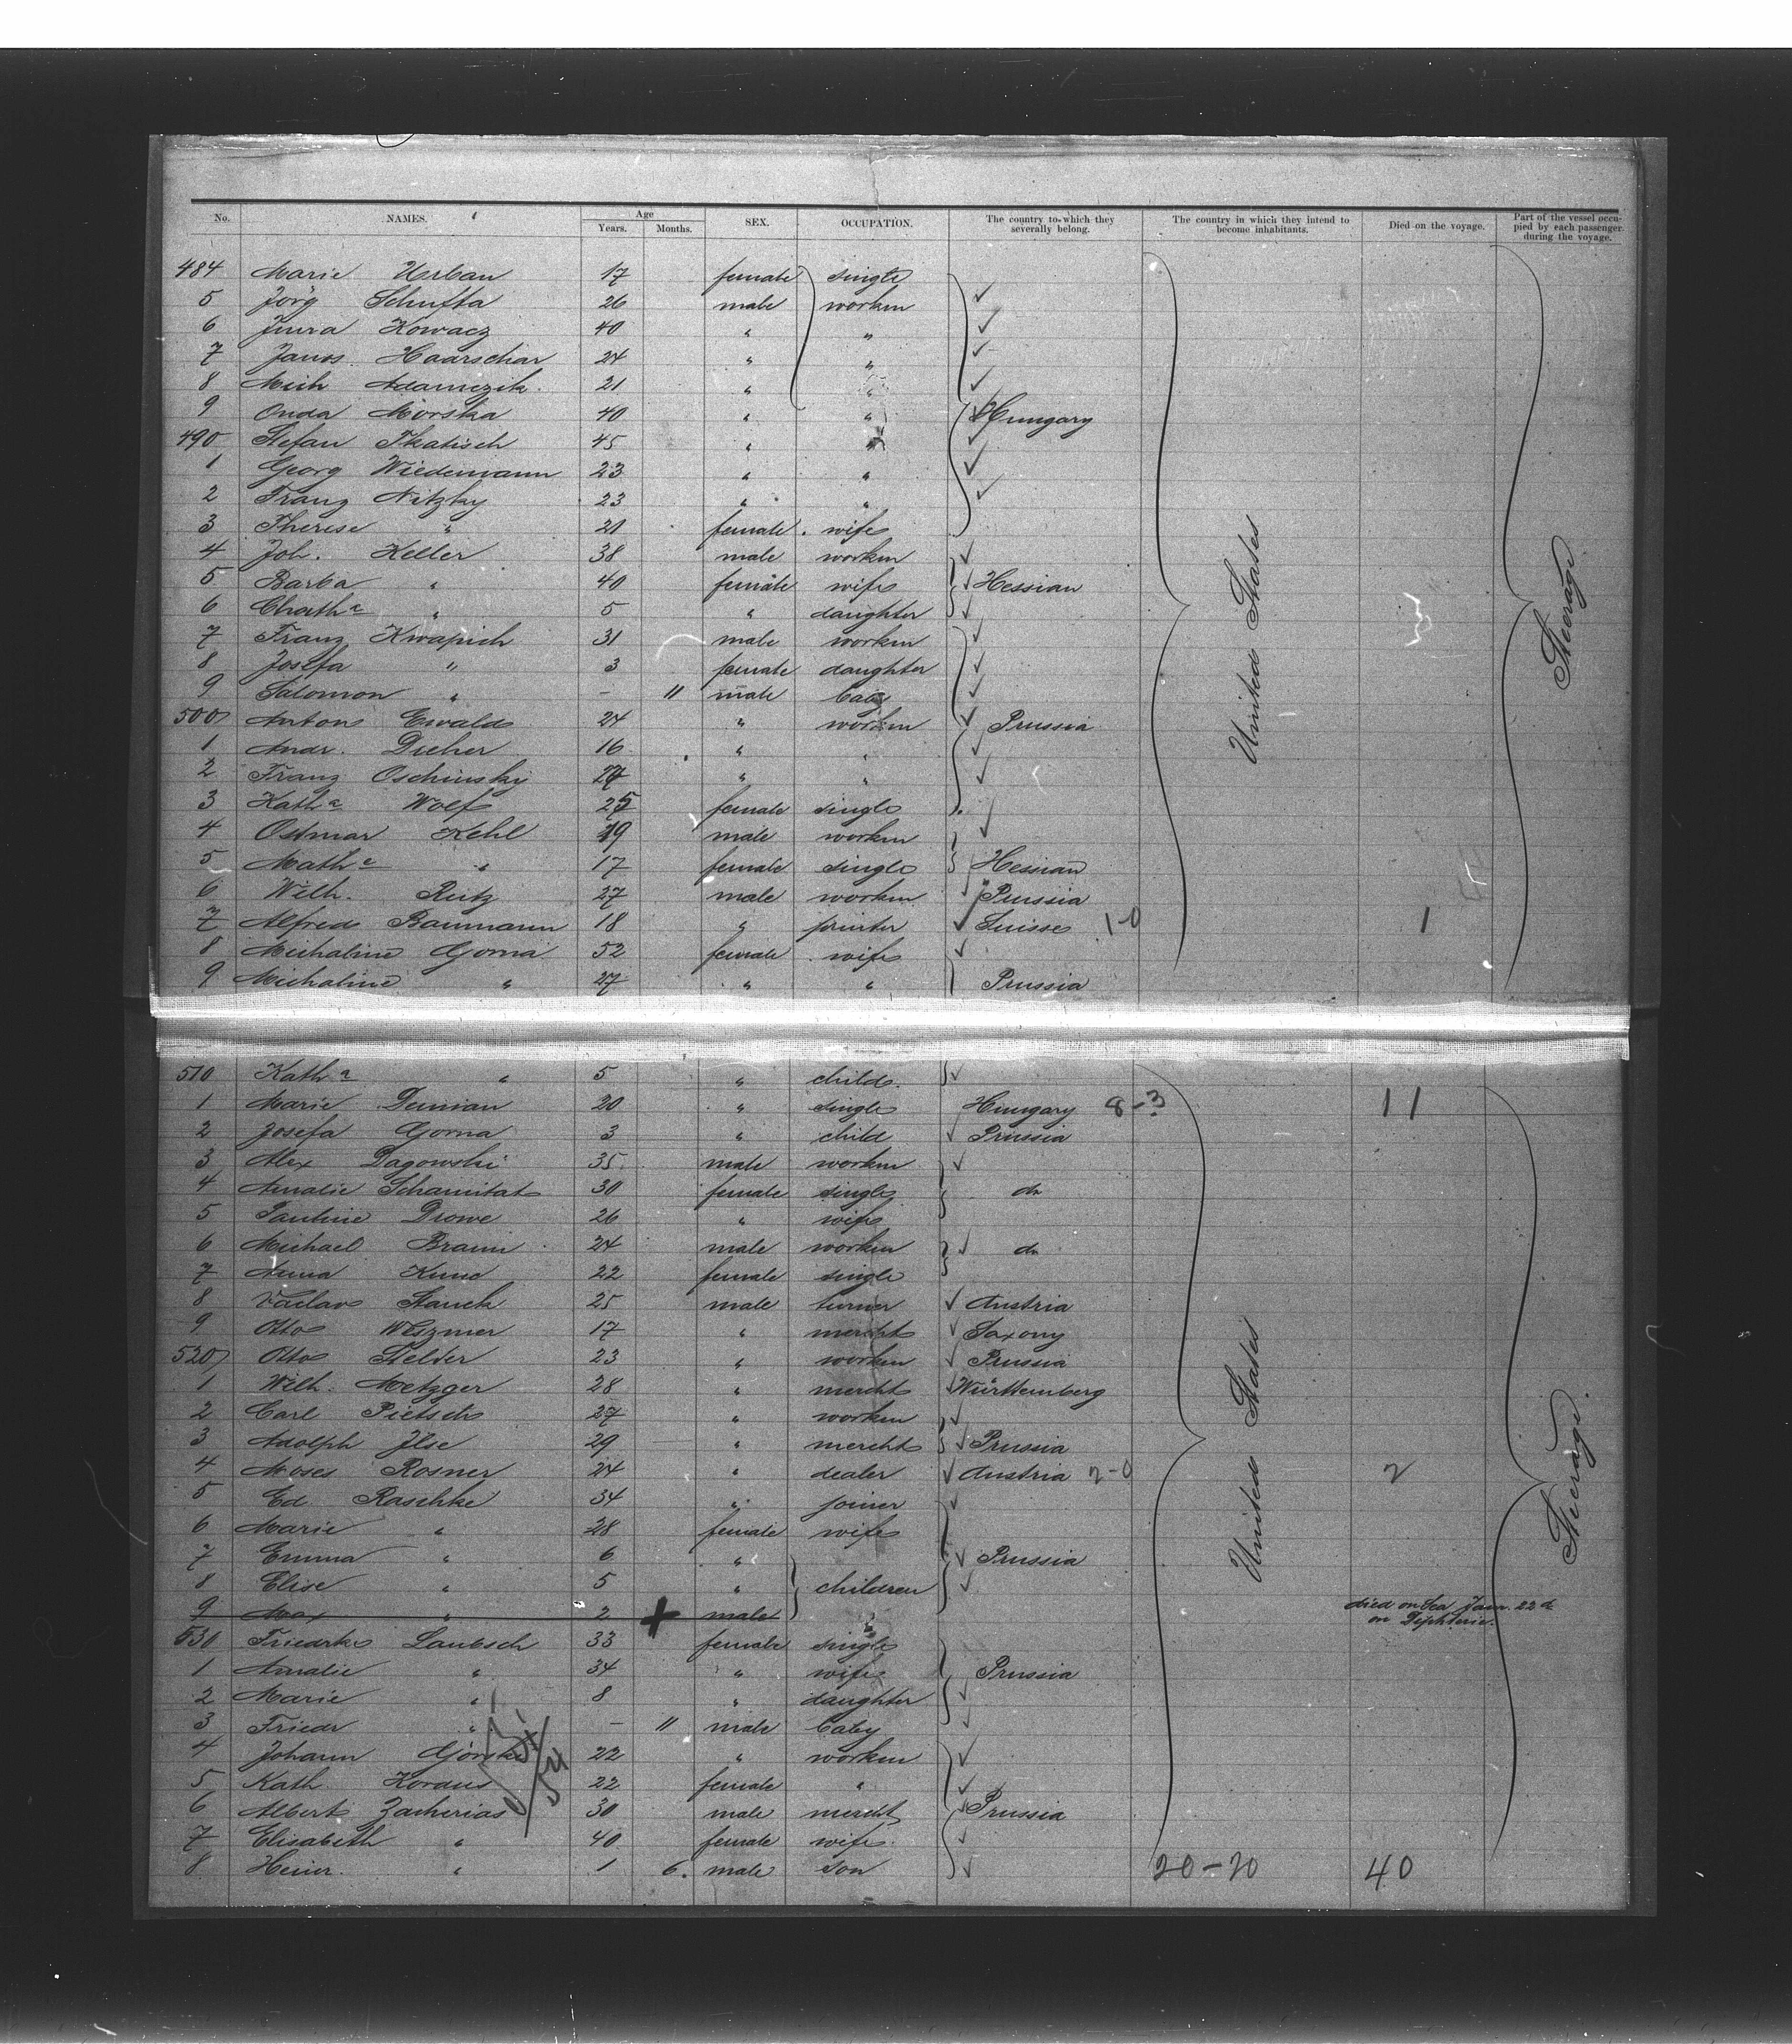 No. NAMES. Age Years. Months. SEX. OCCUPATION. The country to which they severally belong. The country in which they intend to become inhabitants. Died on the voyage. Part of the vessel occupied by each passenger during the voyage.
484 Marie Urban 17 female single
5 Jörg Schufta 26 male workm
6 Jura Kowacz 40 " "
7 Janos Haarschar 24 " "
8 Mich Adamczik 21 " "
9 Onda Morska 40 " " Hungary
490 Stefan Tkatisch 45 "
1 Georg Wiedemann 23 " "
2 Franz Nitzky 23 " "
3 Therese " 21 female wife
4 Joh. Keller 38 male workm
5 Barba " 40 female wife Hessian
6 Chatha " 5 " daughter
7 Franz Kwapich 31 male workm
8 Josefa " 3 female daughter
9 Salomon " – 11 male baby
500 Anton Ewald 24 " workm Prussia
1 Andr. Dieher 16 " "
2 Franz Oschinsky 24 " "
3 Katha Wolf 25 female single
4 Ostmar Kehl 19 male workm
5 Matha " 17 female single Hessian
6 Wilh. Reitz 27 male workm Prussia
7 Alfred Baumann 18 " printer Suisse 1-0 1
8 Michaline Gorna 52 female wife
9 Michaline " 27 " " Prussia
United States
Steerage
510 Katha " 5 " child
1 Marie Demian 20 " single Hungary 8-3 11
2 Josefa Gorna 3 " child Prussia
3 Alex Pagowski 35 male workm
4 Amalie Schamitat 30 female single do
5 Pauline Drowe 26 " wife
6 Michael Braun 24 male workm do
7 Anna Kund 22 female single
8 Vaclav Stanek 25 male turner Austria
9 Otto Weszmer 17 " mercht Saxony
520 Otto Stelter 23 " workm Prussia
1 Wilh. Metzger 28 " mercht Württemberg
2 Carl Pietsch 27 " workm
3 Adolph Ilse 29 " mercht Prussia
4 Moses Rosner 24 " dealer Austria 2-0 2
5 Ed Raschke 34 " joiner
6 Marie " 28 female wife
7 Emma " 6 " Prussia
8 Elise " 5 " children
9 Max " 2 male " died on Sea Jan. 22d
on Diphterie.
530 Friedrke Laubsch 33 female single
1 Amalie " 34 " wife Prussia
2 Marie " 8 " daughter
3 Friedr " – 11 male baby
4 Johann Gorski 22 " workm
5 Kath. Koraus 22 female "
6 Albert Zacherias 30 male mercht Prussia
7 Elisabeth " 40 female wife
8 Heinr. " 1 6. male son 20-20 40
United States
Steerage.